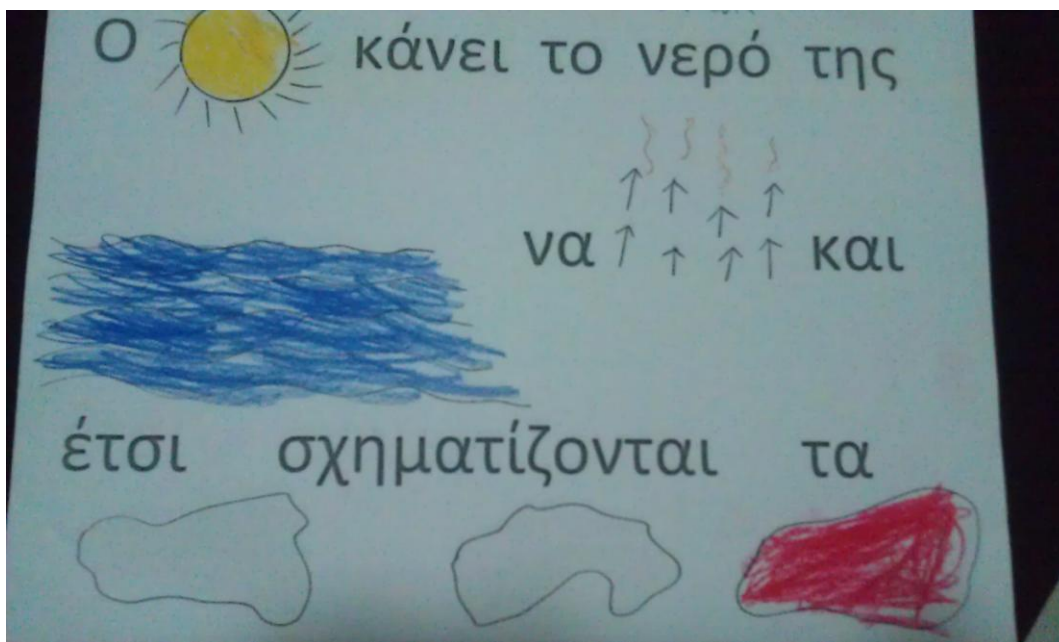 Ο κάνει το νερό της
να και
έτσι σχηματίζονται τα